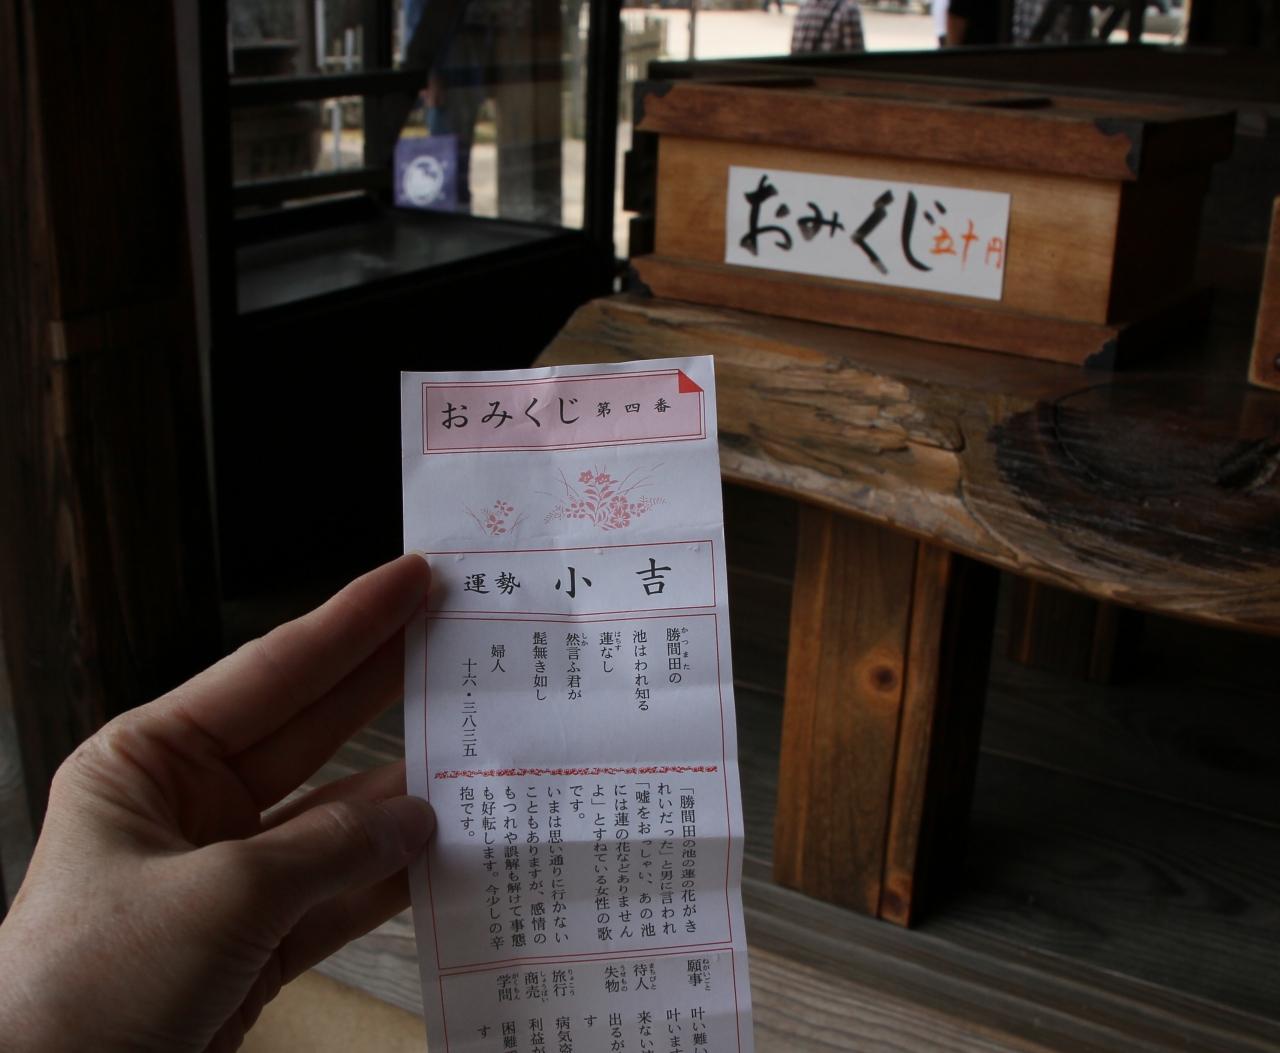 おみくじ 五十円
おみくじ 第四番
運勢 小吉
勝間田の
かつまた
池はわれ知る
蓮なし
はちす
然言ふ君が
しか
髭無き如し
婦人
十六・三八三五
「勝間田の池の蓮の花がき
れいだった」と男に言われ
「嘘をおっしゃい、あの池
には蓮の花などありません
よ」とすねている女性の歌
です。
いまは思い通りに行かない
こともありますが、感情の
もつれや誤解も解けて事態
も好転します。今少しの辛
抱です。
願事
ねがいごと
叶い難い
叶います
待人
まちびと
来ない
失物
うせもの
出るが
す
旅行
りょこう
病気
商売
しょうばい
利益が
学問
がくもん
困難
す